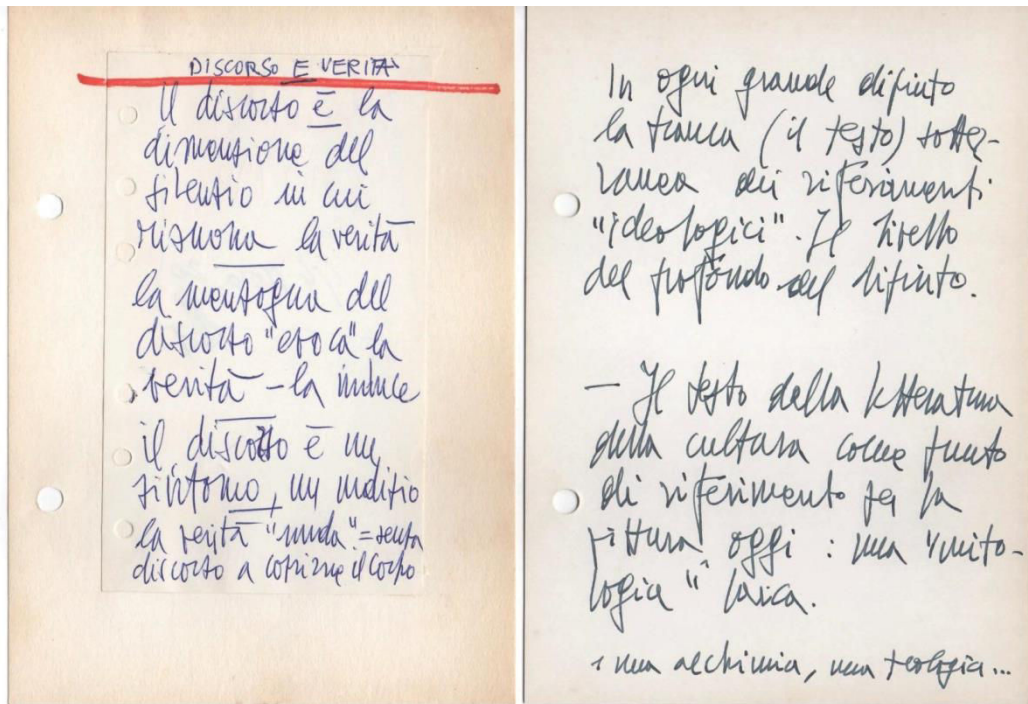 DISCORSO E VERITÀ
Il discorso è la
dimensione del
silenzio in cui
risuona la verità
la menzogna del
discorso "evoca" la
verità – la induce
il discorso è un
sintomo, un indizio
la verità "nuda" = senza
discorso a coprirne il corpo
In ogni grande dipinto
la trama (il testo) sotter-
ranea dei riferimenti
"ideologici". Il livello
del profondo del dipinto.
– Il testo della letteratura
della cultura come punto
di riferimento per la
pittura oggi : una "mito-
logia" laica.
e una alchimia, una teologia...